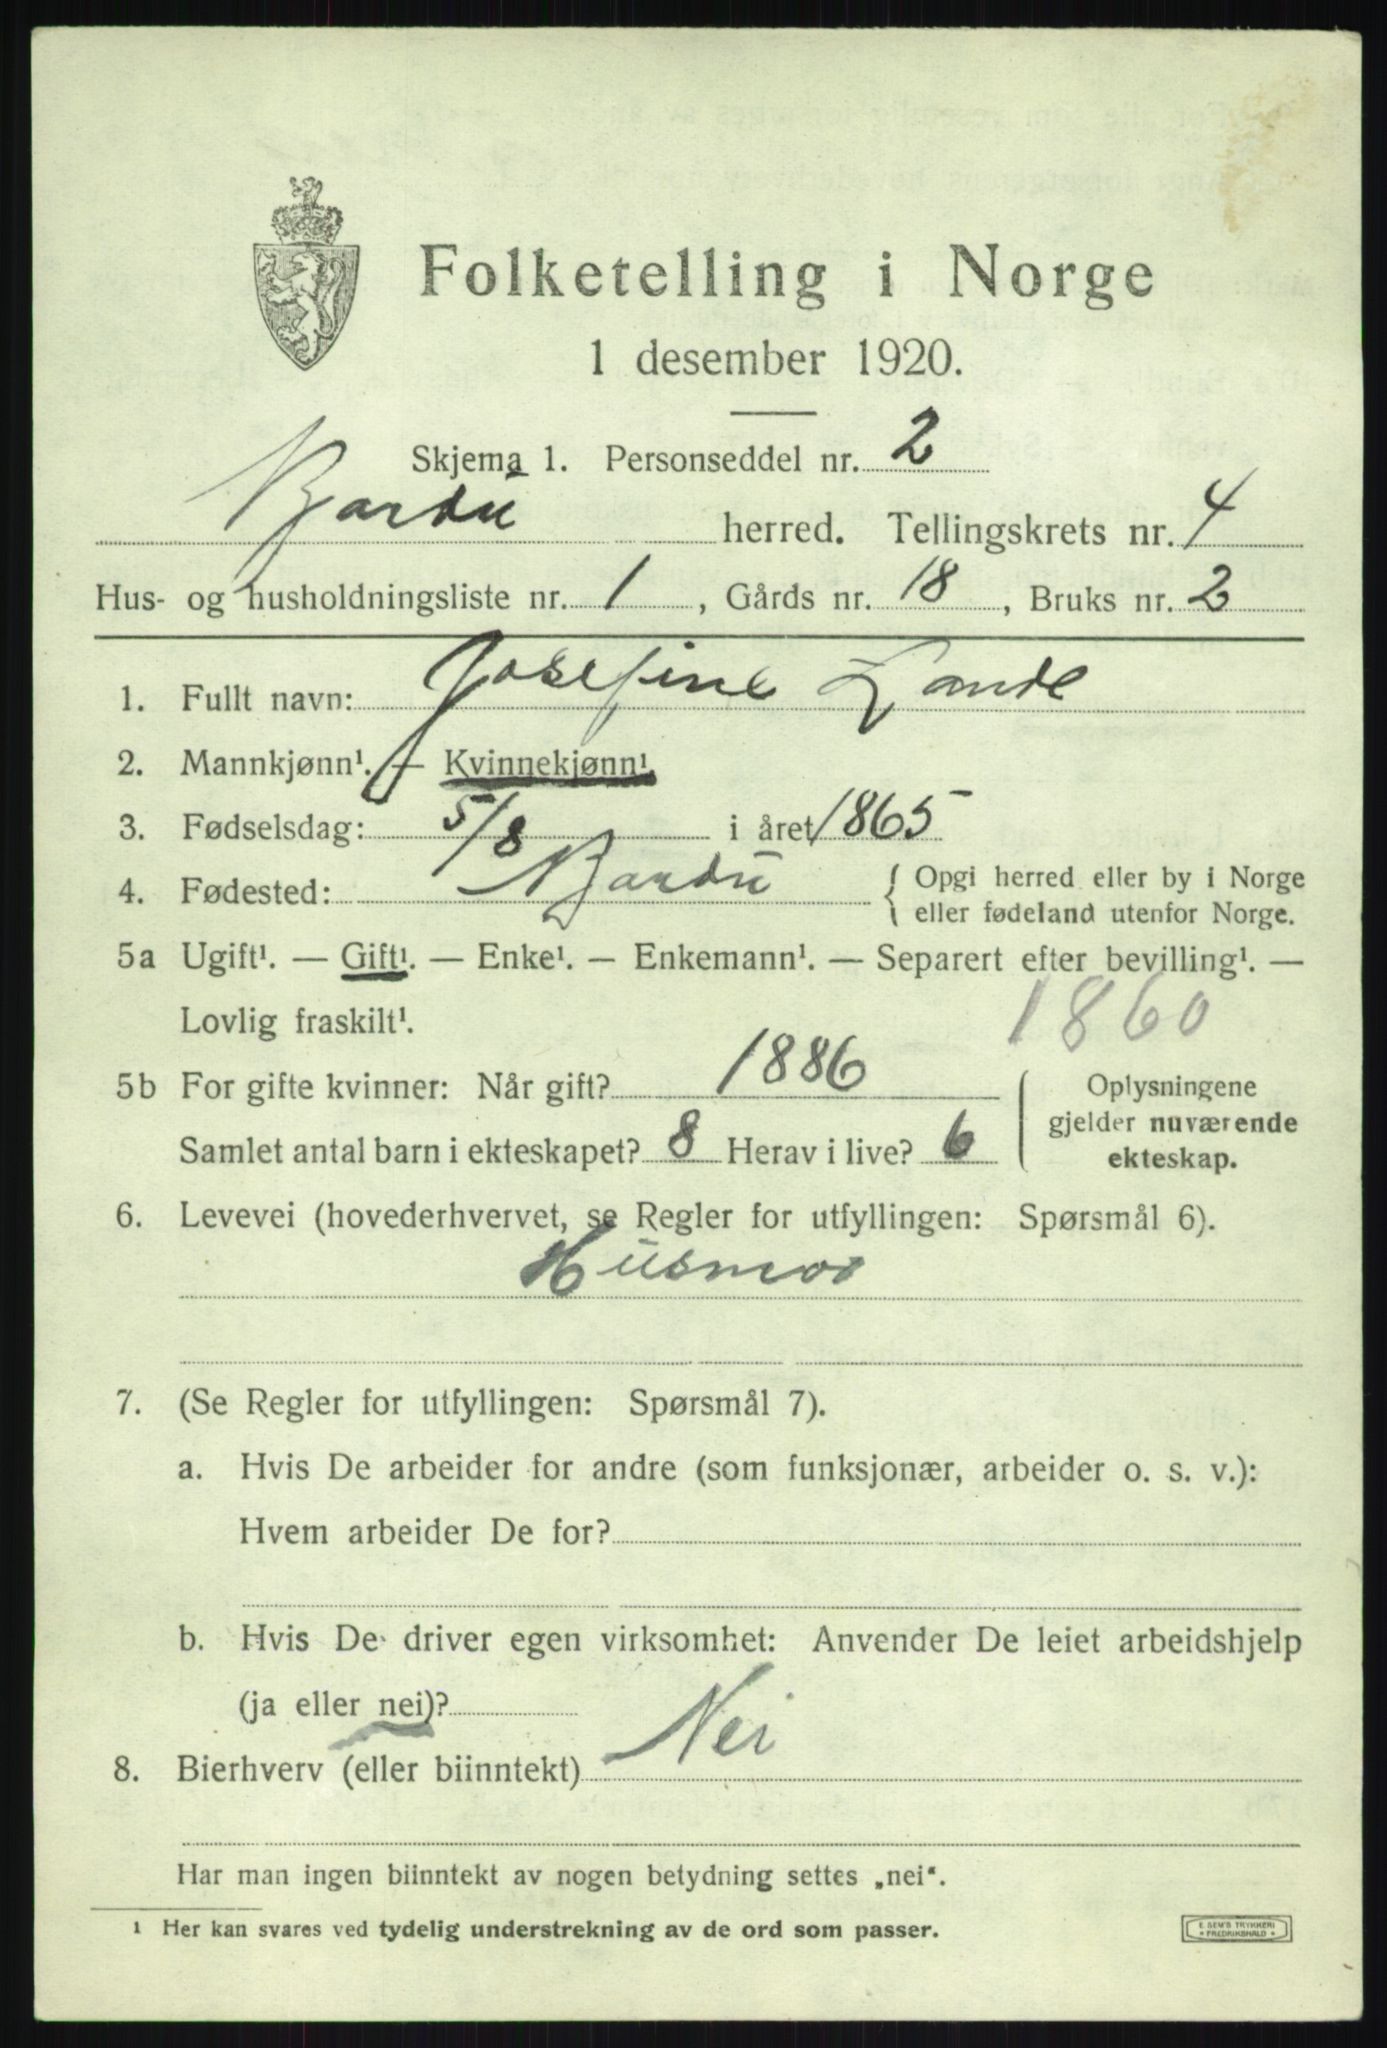 Folketelling i Norge
1 desember 1920.
Skjema 1. Personseddel nr. 2
Bardu herred. Tellingskrets nr. 4
Hus- og husholdningsliste nr. 1, Gårds nr. 18, Bruks nr. 2
1. Fullt navn: Josefine Lande
2. Mannkjønn¹. — Kvinnekjønn¹.
3. Fødselsdag: 5/8 i året 1865
4. Fødested: Bardu { Opgi herred eller by i Norge
eller fødeland utenfor Norge.
5a Ugift¹. — Gift¹. — Enke¹. — Enkemann¹. — Separert efter bevilling¹. —
Lovlig fraskilt¹. 1860
5b For gifte kvinner: Når gift? 1886
Samlet antal barn i ekteskapet? 8 Herav i live? 6
Oplysningene
gjelder nuværende
ekteskap.
6. Levevei (hovederhvervet, se Regler for utfyllingen: Spørsmål 6).
Husmor
7. (Se Regler for utfyllingen: Spørsmål 7).
a. Hvis De arbeider for andre (som funksjonær, arbeider o. s. v.):
Hvem arbeider De for?
b. Hvis De driver egen virksomhet: Anvender De leiet arbeidshjelp
(ja eller nei)?
8. Bierhverv (eller biinntekt) Nei
Har man ingen biinntekt av nogen betydning settes „nei“.
¹ Her kan svares ved tydelig understrekning av de ord som passer.
E. SEM'S TRYKKERI
FREDRIKSHALD